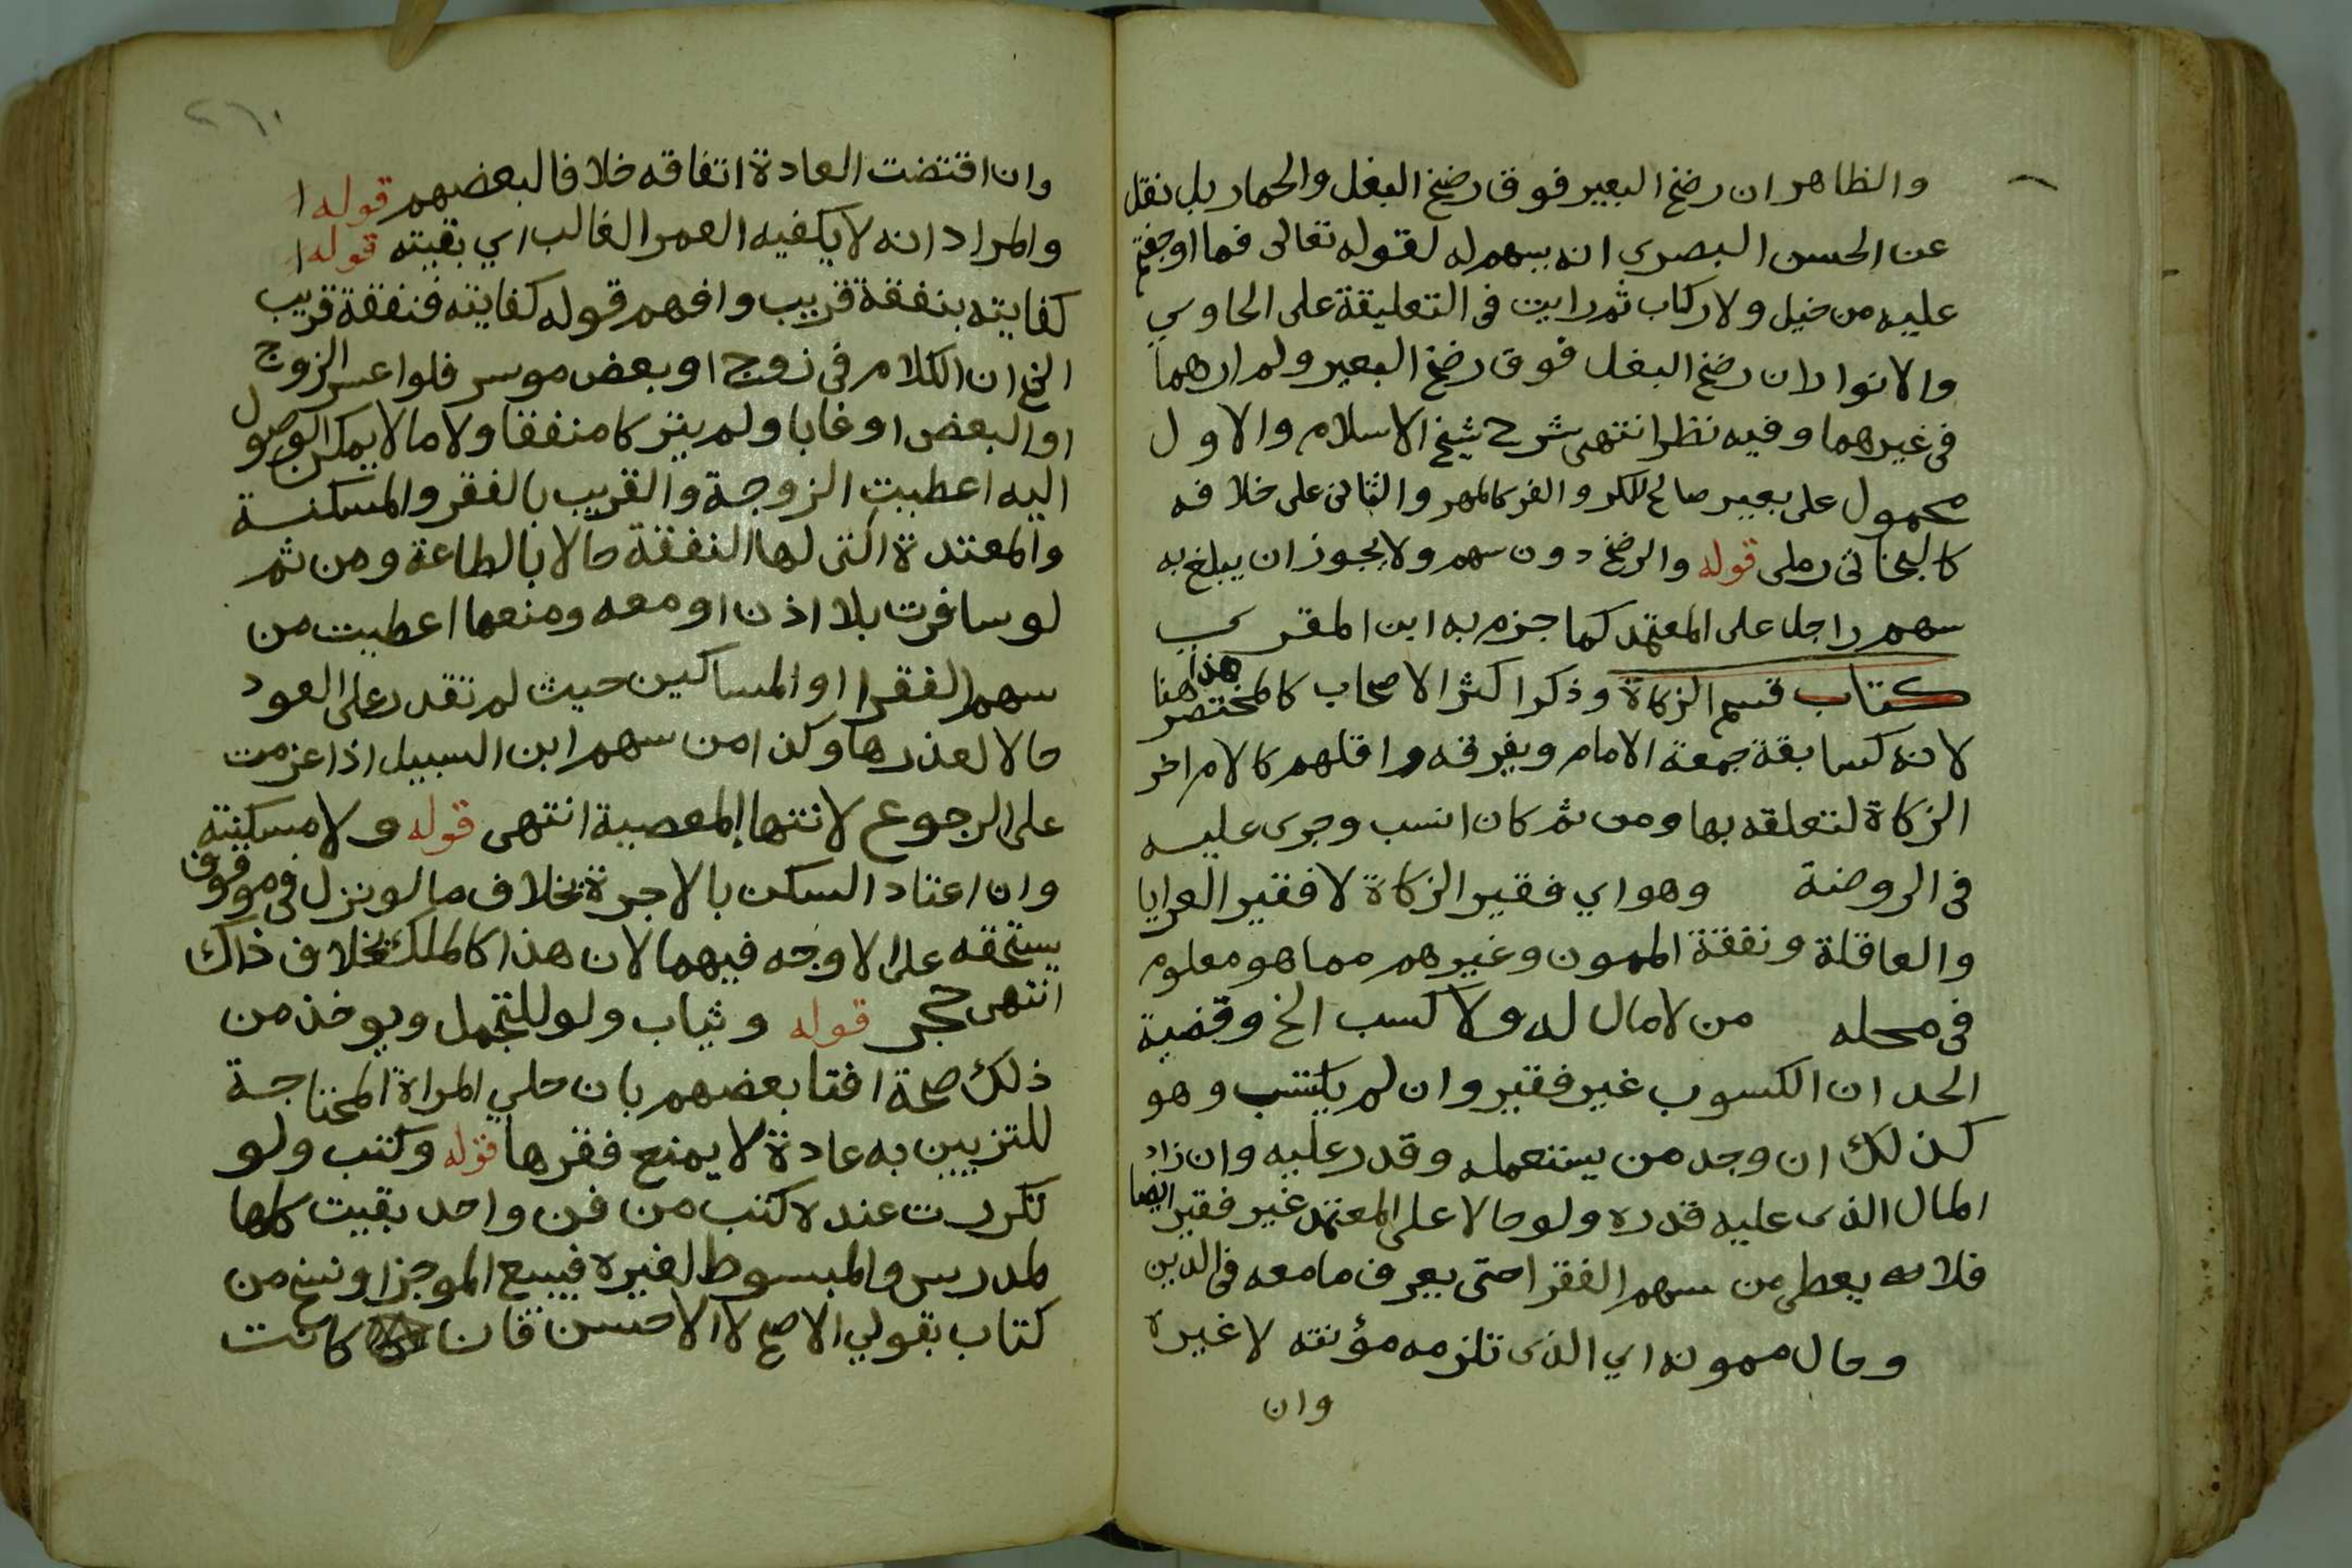 والظاهر ان رضخ البعير فوق رضخ البغل والحمار بل نقل
عن الحسن البصرى انه يسهم له لقوله تعالى فما اوجفتم
عليه من خيل ولا ركاب ثم رايت فى التعليقة على الحاوي
والانوار ان رضخ البغل فوق رضخ البعير ولم ارهما
فى غيرهما وفيه نظر انتهى شرح شيخ الاسلام والاول
محمول على بعير صالح للكر والفر كالمهر والثانى على خلافه
كالبخاتى رملى قوله والرضخ دون سهم ولا يجوز ان يبلغ به
سهم راجل على المعتمد كما جزم به ابن المقري
كتاب قسم الزكاة وذكر اكثر الاصحاب كالمختصر هذا هنا
لانه كسابقة جمعة الامام ويفرقه واقلهم كالام اخر
الزكاة لتعلقه بها ومن ثم كان انسب وجرى عليه
فى الروضة وهو اي فقير الزكاة لا فقير العرايا
والعاقلة ونفقة الممون وغيرهم مما هو معلوم
فى محله من لا مال له ولا كسب الخ وقضية
الحد ان الكسوب غير فقير وان لم يكتسب وهو
كذلك ان وجد من يستعمله وقدر عليه وان زاد
المال الذى عليه قدره ولو حالا على المعتمد غير فقير ايضا
فلا يعطى من سهم الفقرا حتى يعرف ما معه فى الدين
وحال ممونه اي الذى تلزمه مؤنته لا غيره
وان
٢٦١
وان اقتضت العادة اتفاقه خلافا لبعضهم قوله ا
والمراد انه لا يكفيه العمر الغالب اي بقيته قوله ا
كفايته بنفقة قريب وافهم قوله كفايته فنفقة قريب
الخ ان الكلام فى زوج او بعض موسر فلو اعسر الزوج
او البعض او غابا ولم يتركا منفقا ولا مالا يمكن الوصول
اليه اعطيت الزوجة والقريب بالفقر والمسكنة
والمعتدة التى لها النفقة حالا بالطاعة ومن ثم
لو سافرت بلا اذن او معه ومنعها اعطيت من
سهم الفقرا او المساكين حيث لم تقدر على العود
حالا لعذرها وكذا من سهم ابن السبيل اذا عزمت
على الرجوع لانتها المعصية انتهى قوله ولا مسكنته
وان اعتاد السكن بالاجرة بخلاف ما لو نزل فى موقوف
يستحقه على الاوجه فيهما لان هذا كالملك بخلاف ذاك
انتهى حجر قوله وثياب ولو للتجمل ويوخذ من
ذلك صحة افتا بعضهم بان حلي المراة المحتاجة
للتزيين به عادة لا يمنع فقرها قوله وكتب ولو
تكررت عنده كتب من فن واحد بقيت كلها
لمدرس والمبسوط لغيره فيبيع الموجز او نسخ من
كتاب بقولي الاصح لا الاحسن فان كانت